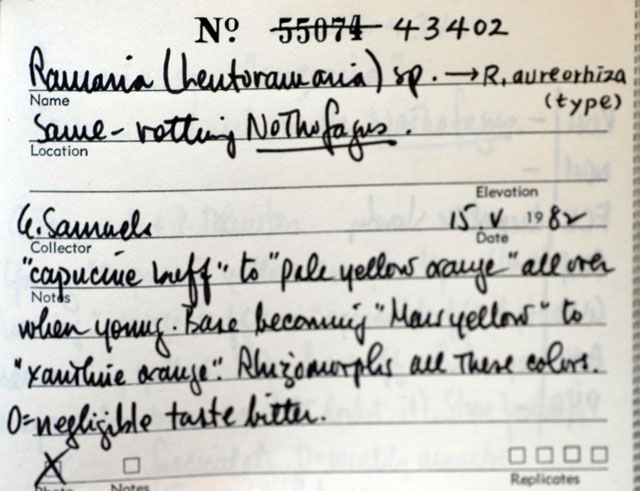 Nº 55074 43402
Ramaria (Lentoramaria) sp. → R. aureorhiza
Name
(type)
Same - rotting Nothofagus.
Location
Elevation
G. Samuels 15. V 1982
Collector
Date
"capucine buff" to "pale yellow orange" all over
Notes
when young. Base becoming "Mars yellow" to
"xanthine orange". Rhizomorphs all these colors.
O= negligible taste bitter.
Photo Notes Replicates